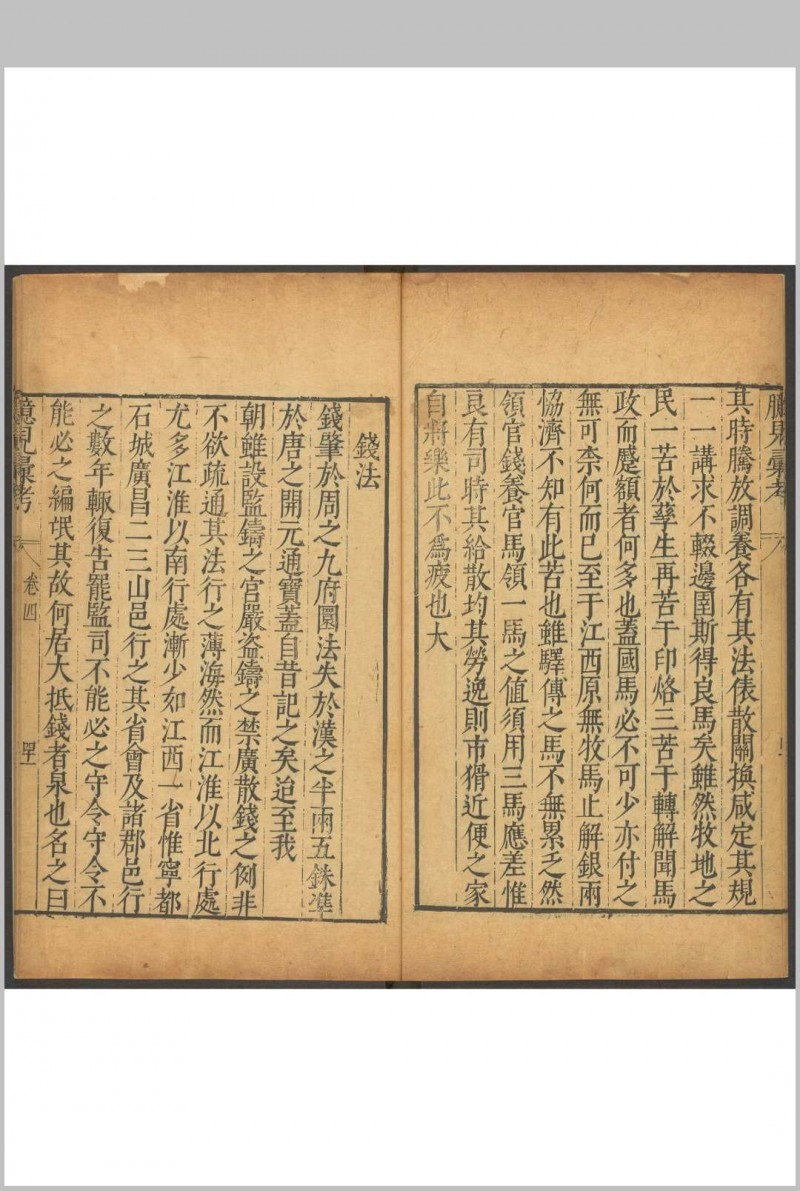 其時騰放調養各有其法俵散關換咸定其規
一一講求不輟邊圉斯得良馬矣雖然牧地之
民一苦於孳生再苦于印烙三苦于轉解聞馬
政而蹙額者何多也蓋國馬必不可少亦付之
無可柰何而已至于江西原無牧馬止解銀兩
恊濟不知有此苦也雖驛傳之馬不無累乏然
領官錢養官馬領一馬之值須用三馬應差惟
良有司時其給散均其勞逸則市猾近便之家
自將樂此不爲疲也大
錢法
錢肇於周之九府圜法失於漢之半兩五銖準
於唐之開元通寶蓋自昔記之矣迨至我
朝雖設監鑄之官嚴盗鑄之禁廣散錢之例非
不欲疏通其法行之薄海然而江淮以北行處
尤多江淮以南行處漸少如江西一省惟寧都
石城廣昌二三山邑行之其省會及諸郡邑行
之數年輙復告罷監司不能必之守令守令不
能必之編氓其故何居大抵錢者泉也名之曰
臆見彙考
卷四